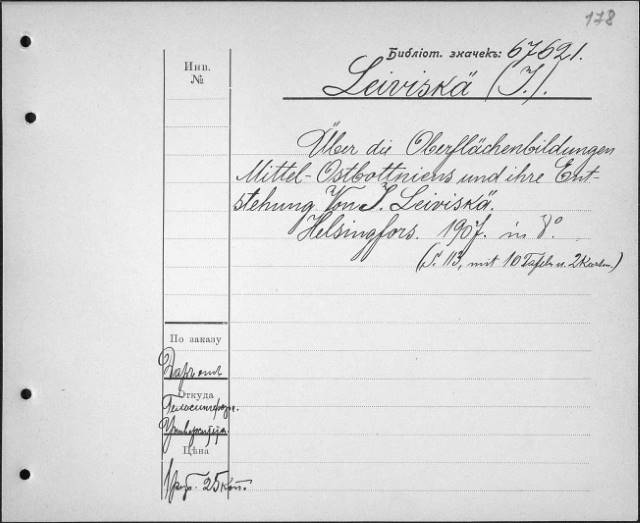 178
Библiот. значекъ: 67621.
Инв.
№
Leiviskä (I.).
Über die Oberflächenbildungen
Mittel-Ostbottniens und ihre Ent-
stehung. Von I. Leiviskä.
Helsingfors. 1907. in 8°.
(S. 113, mit 10 Tafeln u. 2 Karten.)
По заказу
Даръ отъ
Откуда
Гельсингфорс.
Университета
Цѣна
1 руб. 25 коп.